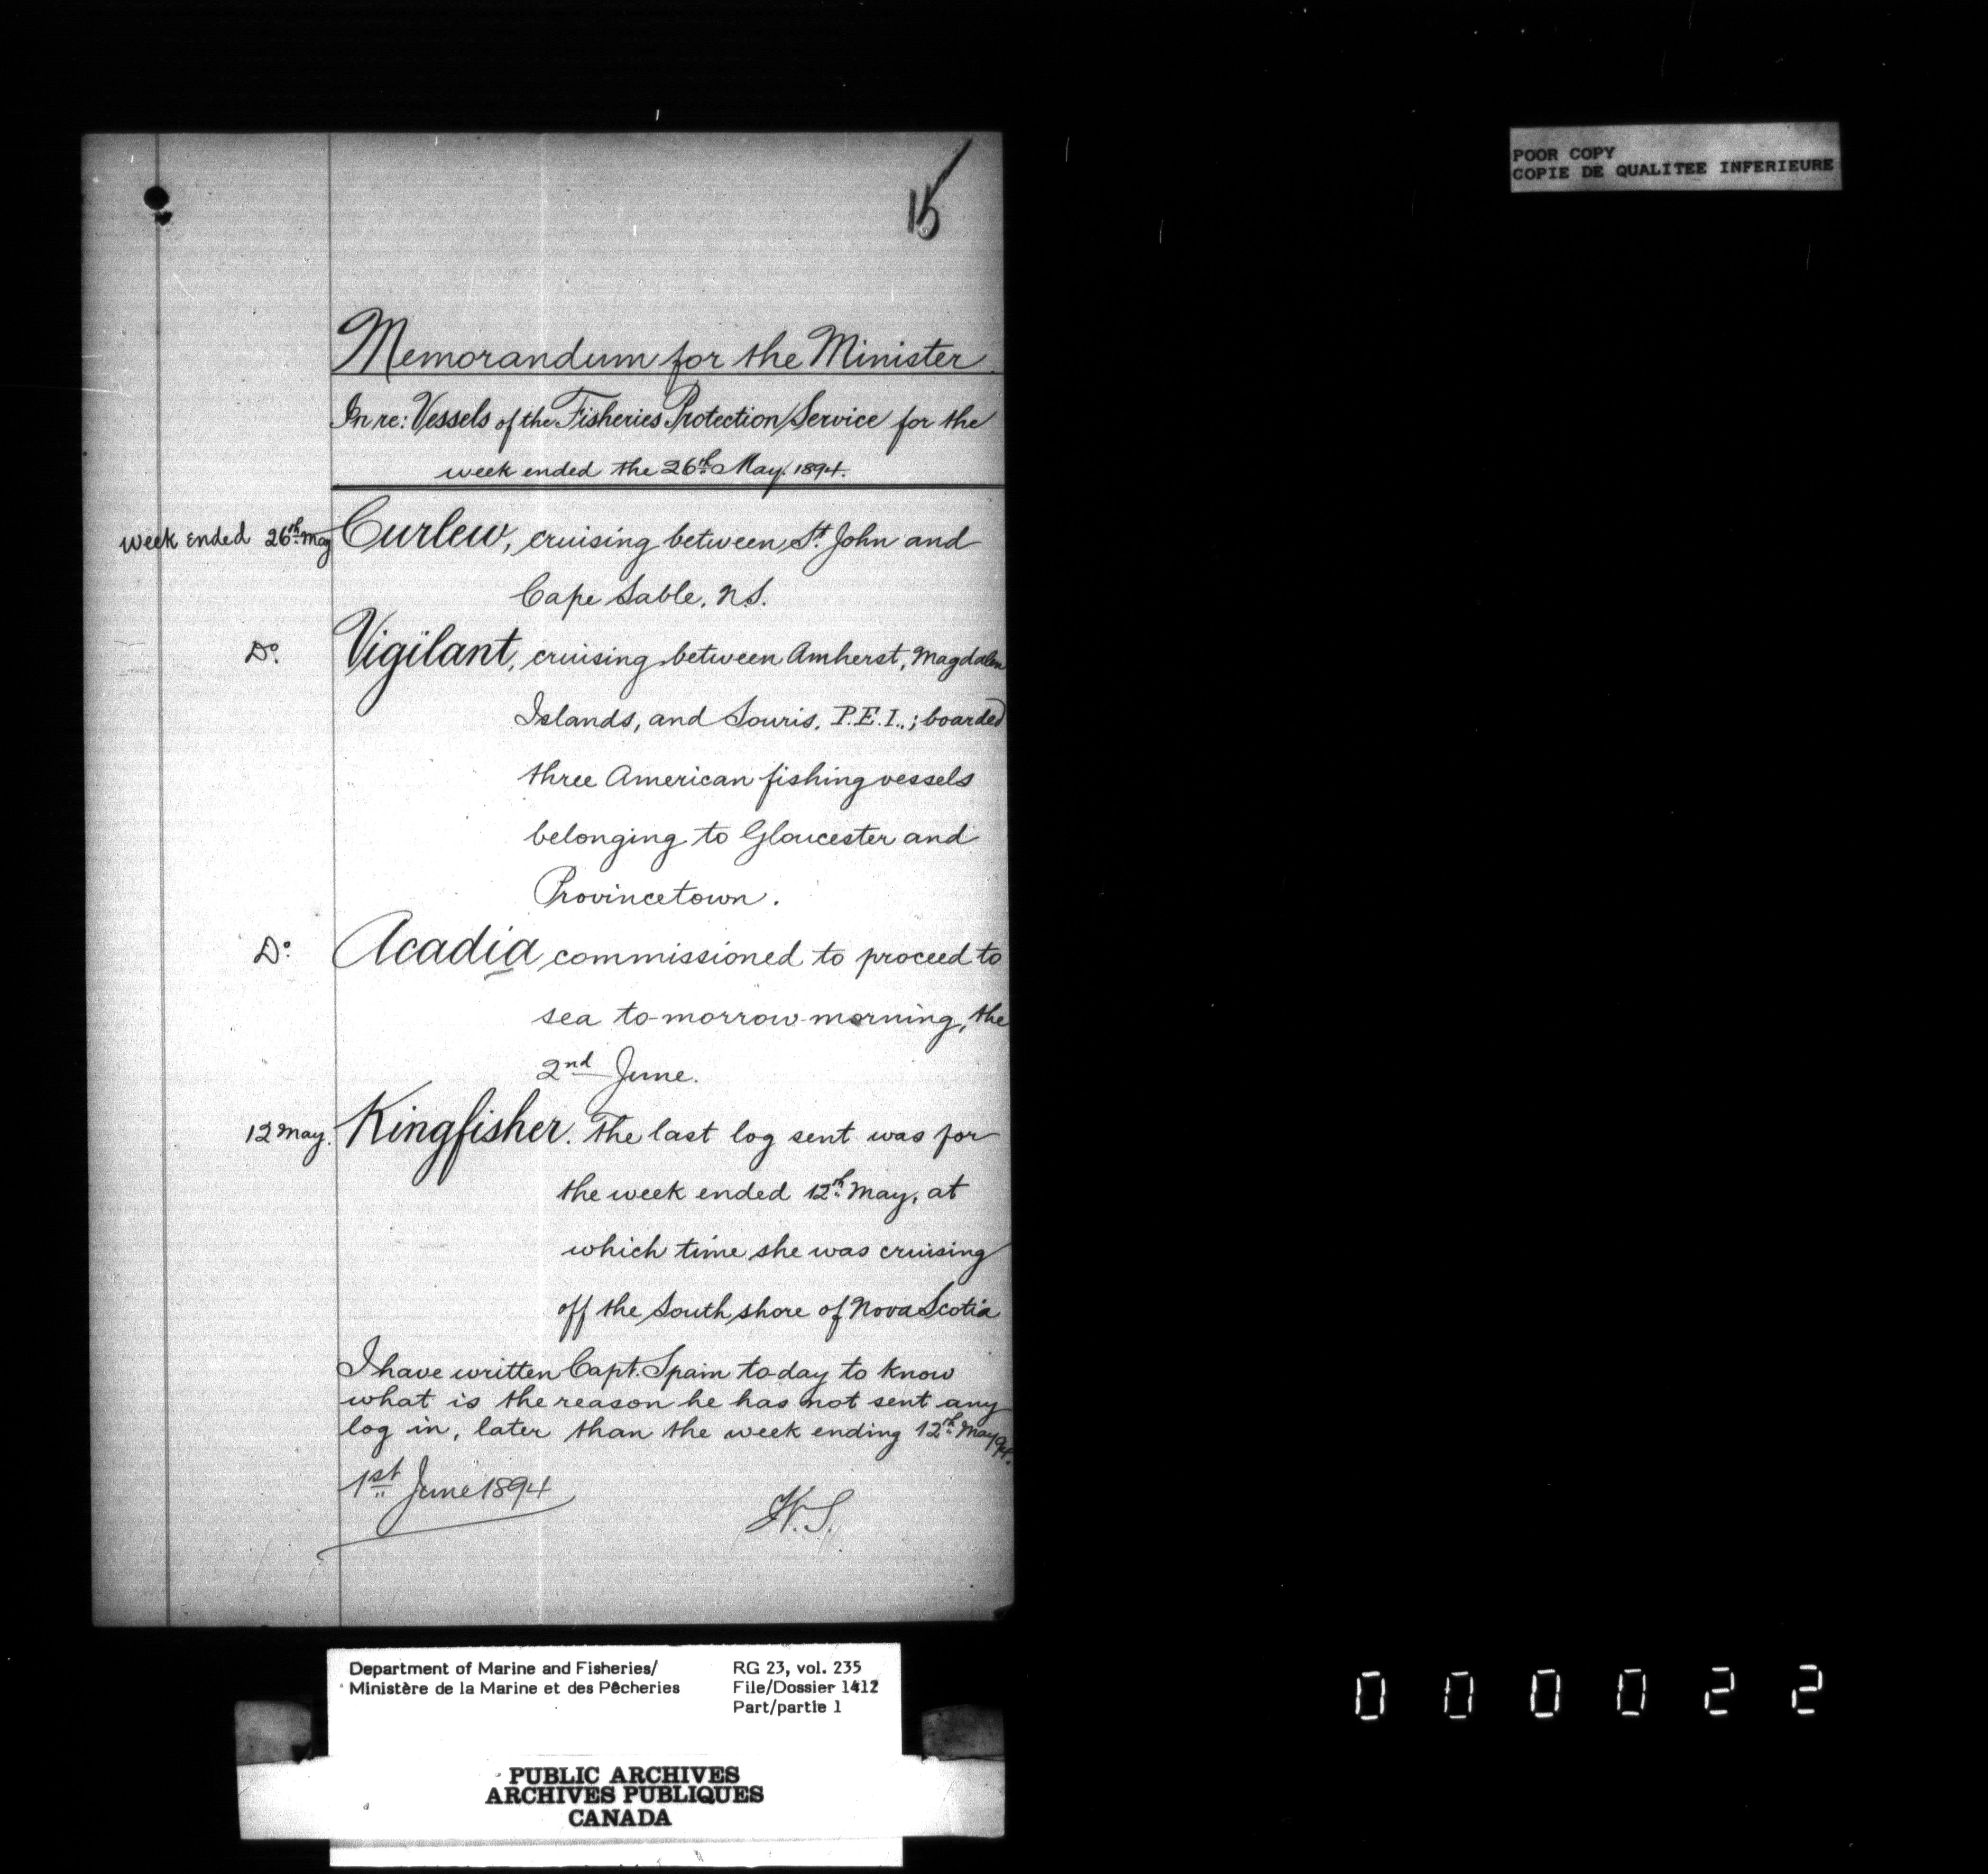 15
POOR COPY
COPIE DE QUALITEE INFERIEURE
Memorandum for the Minister.
In re: Vessels of the Fisheries Protection Service for the
week ended the 26th May. 1894.
week ended 26th May Curlew, cruising between St. John and
Cape Sable. N.S.
Do. Vigilant, cruising between Amherst, Magdalen
Islands, and Souris, P.E.I.; boarded
three American fishing vessels
belonging to Gloucester and
Provincetown.
Do. Acadia commissioned to proceed to
sea to-morrow-morning, the
2nd June.
12 May. Kingfisher. The last log sent was for
the week ended 12th May, at
which time she was cruising
off the South shore of Nova Scotia
I have written Capt. Spain to-day to know
what is the reason he has not sent any
log in, later than the week ending 12th May 94.
1st June 1894
Department of Marine and Fisheries/
Ministère de la Marine et des Pêcheries
RG 23, vol. 235
File/Dossier 1412
Part/partie 1
PUBLIC ARCHIVES
ARCHIVES PUBLIQUES
CANADA
000022